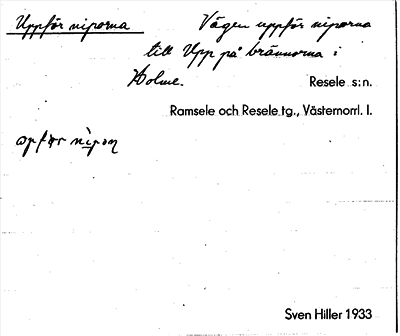 Uppför niporna
Vägen uppför niporna
till Upp på brännorna i
Holme.
Resele s:n.
Ramsele och Resele tg., Västernorrl. l.
opfør nipon
Sven Hiller 1933